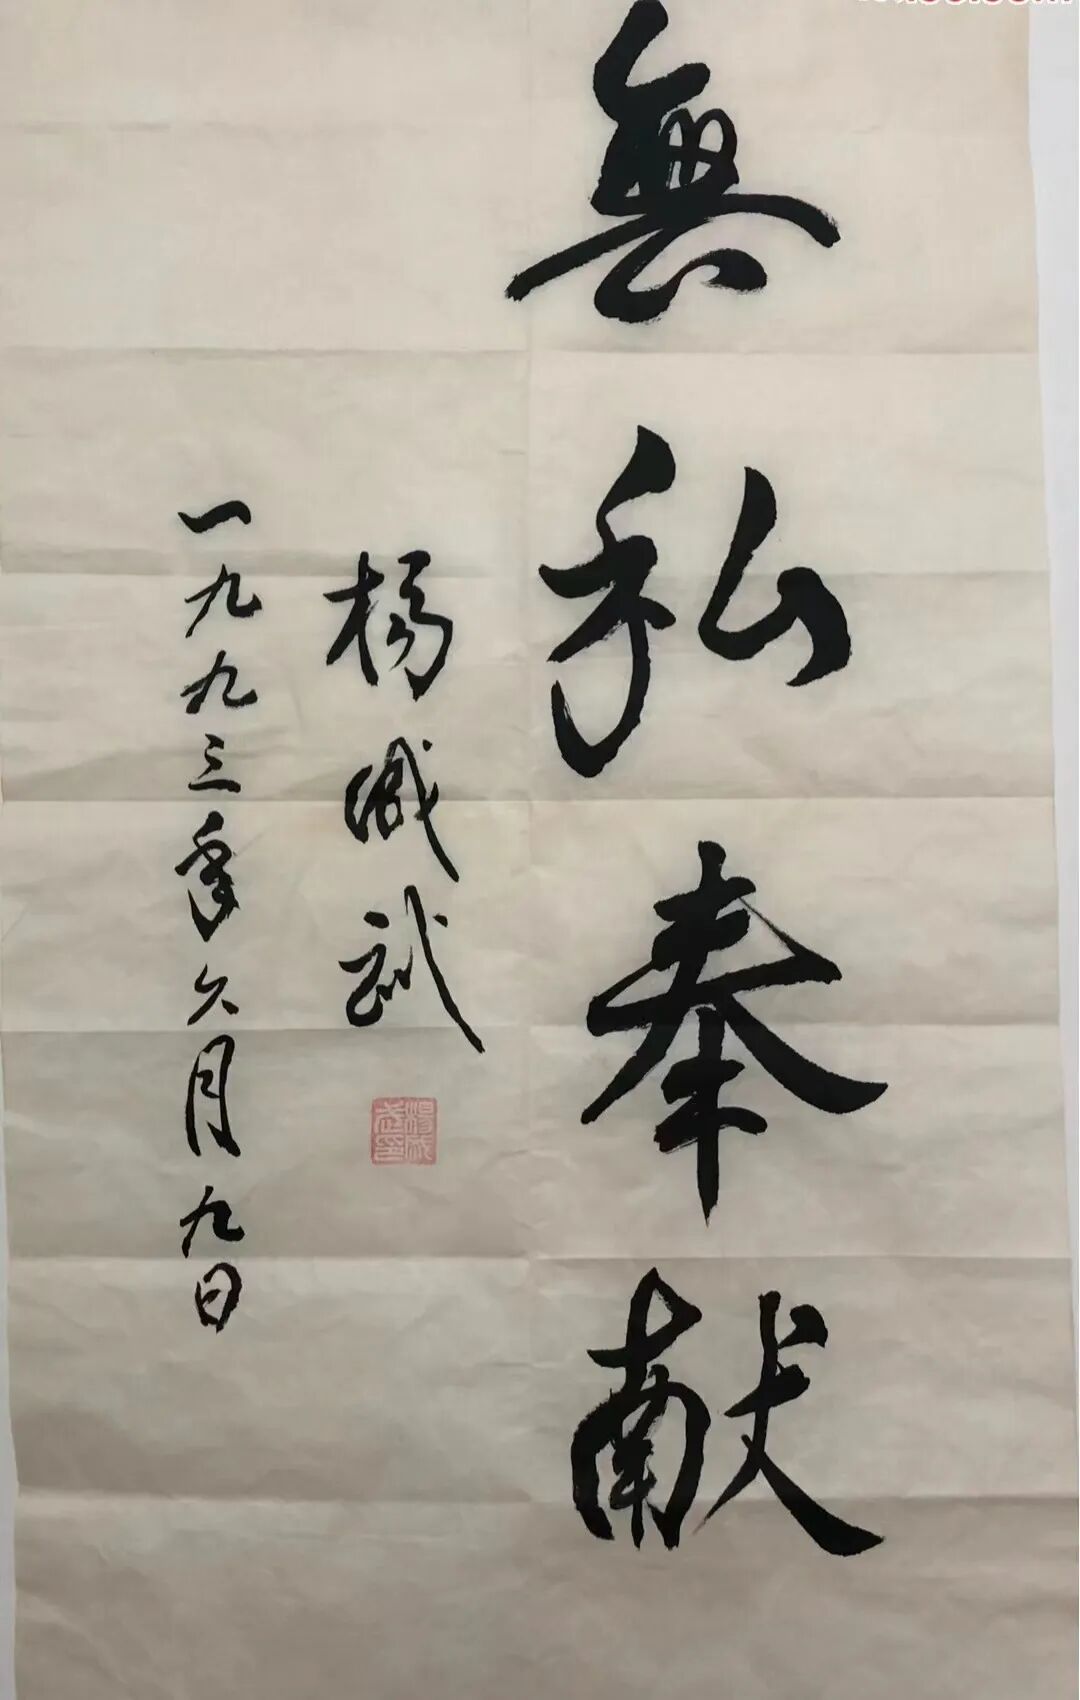 無私奉献
楊成武
一九九三年六月九日
楊成武印